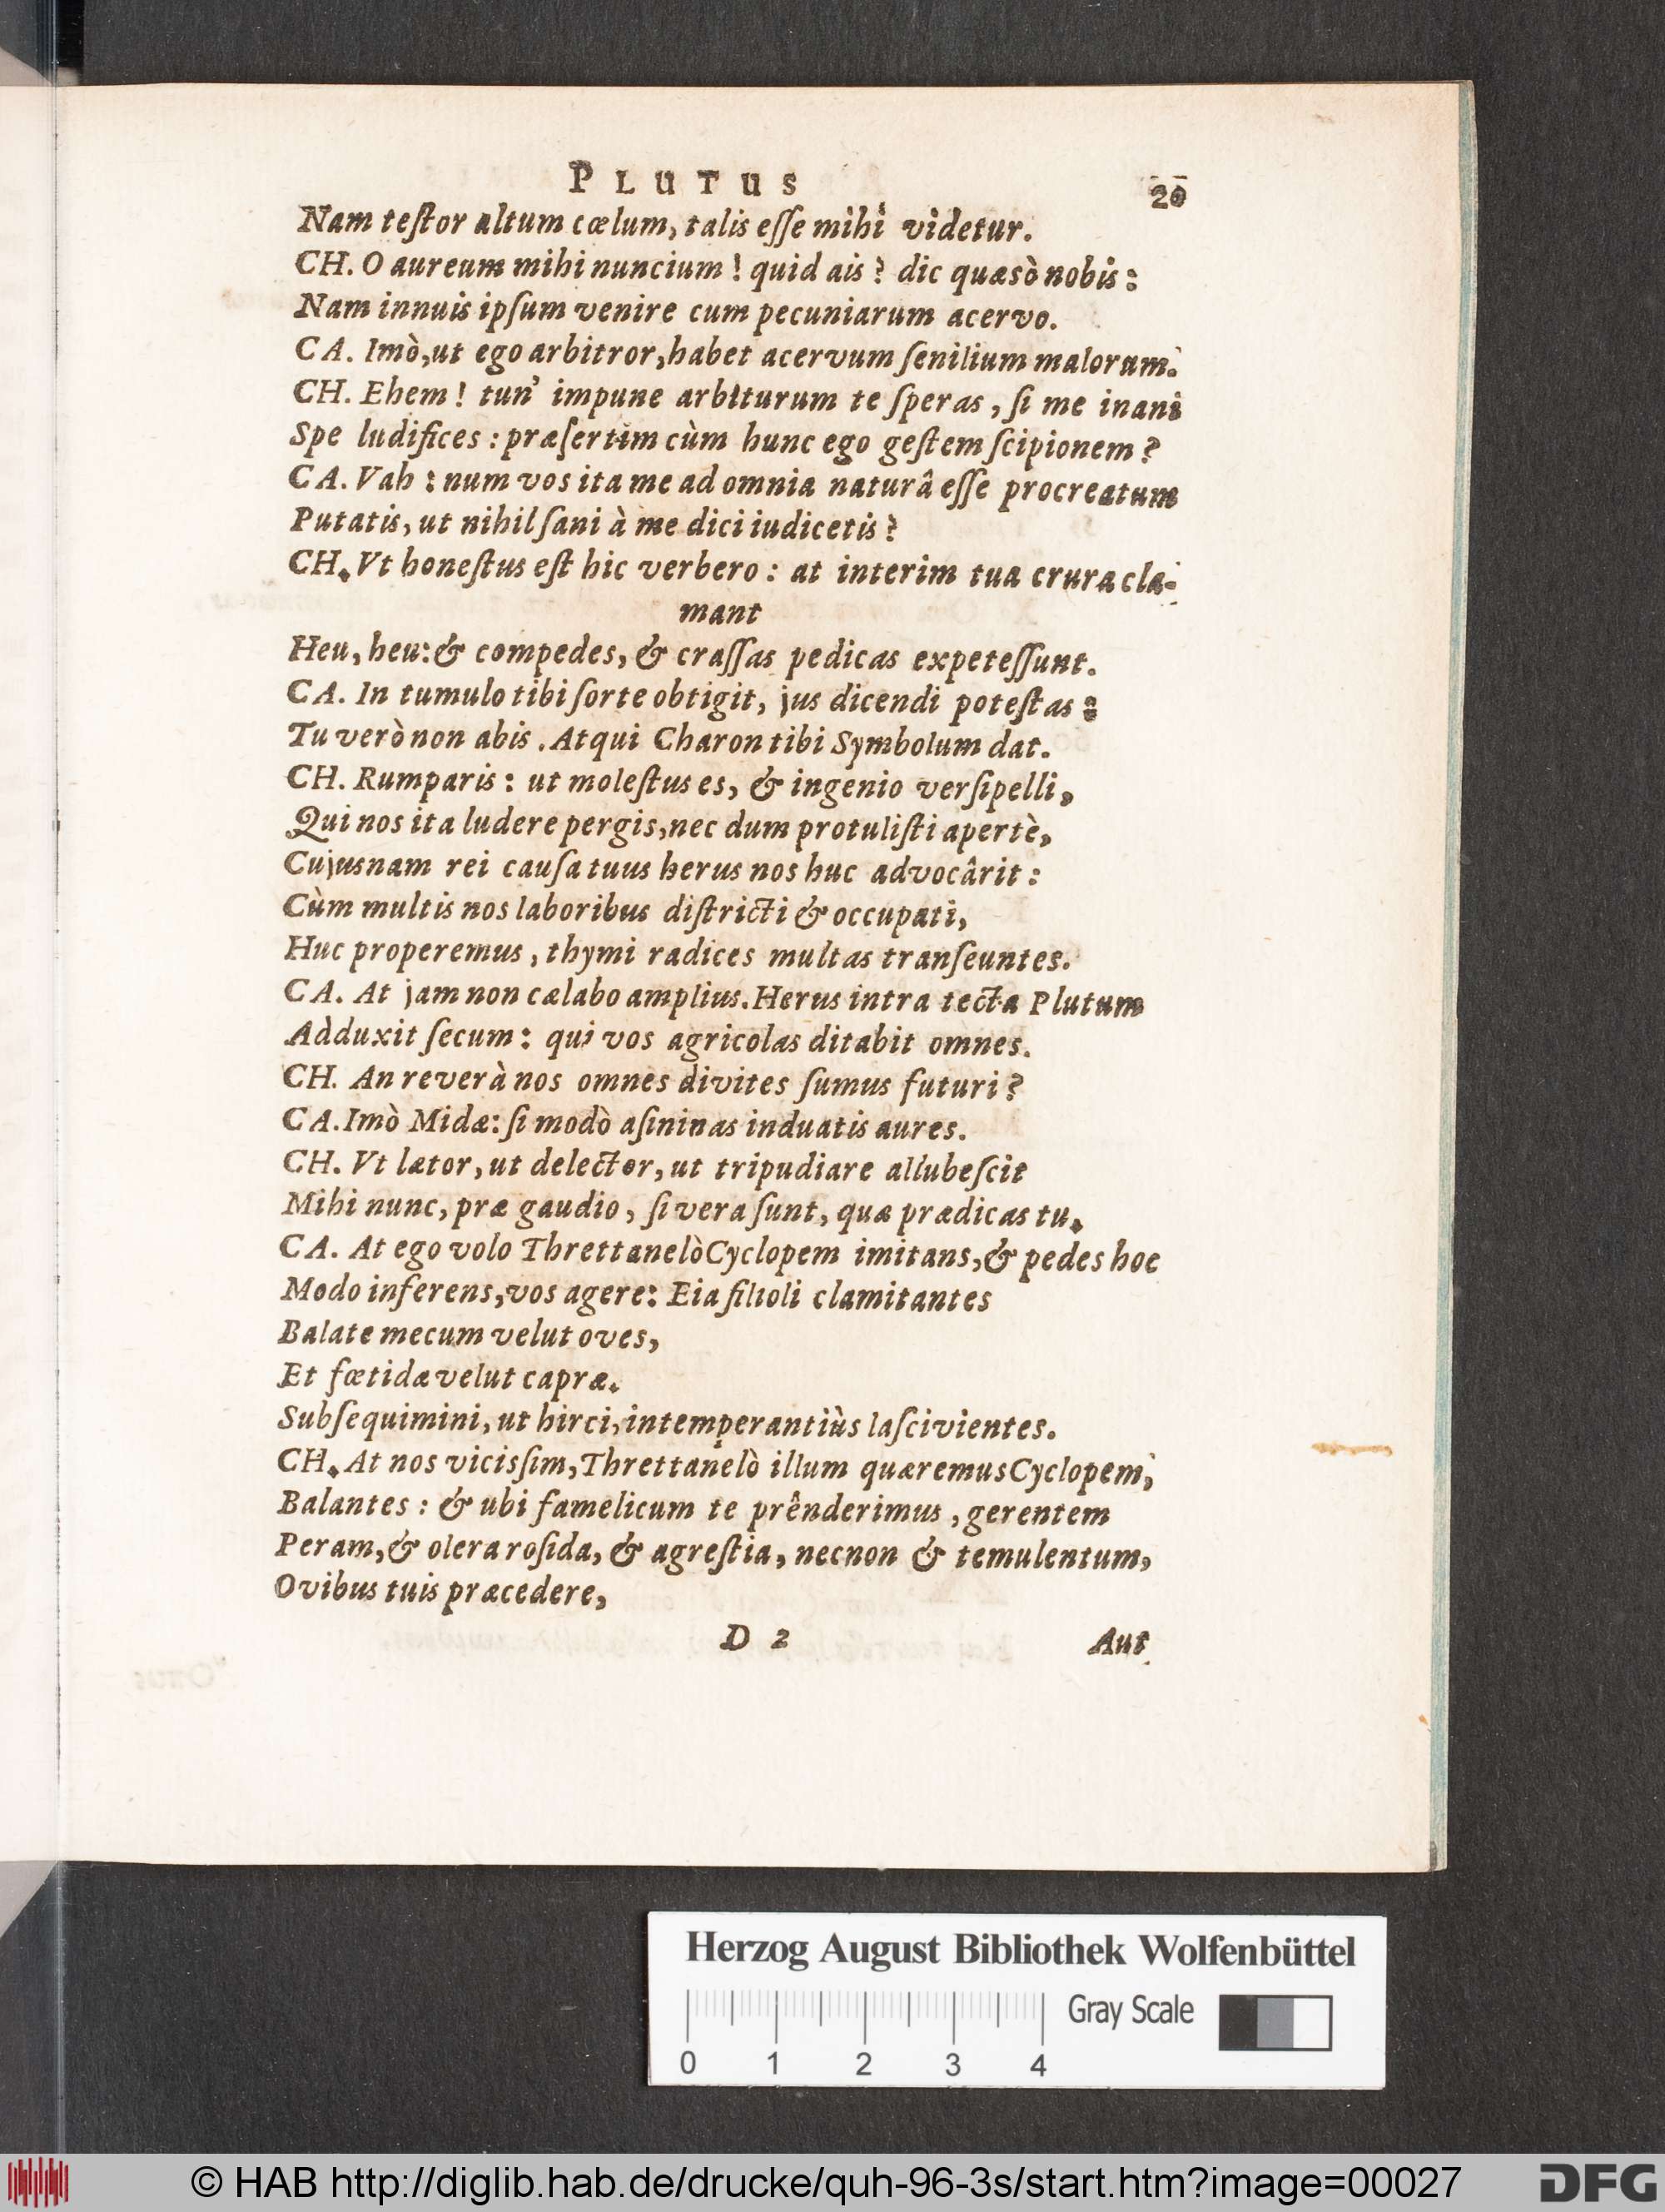 PLUTUS 20
Nam teſtor altum cœlum, talis eſſe mihi videtur.
CH. O aureum mihi nuncium! quid ais? dic quæsò nobis:
Nam innuis ipſum venire cum pecuniarum acervo.
CA. Imò, ut ego arbitror, habet acervum ſenilium malorum.
CH. Ehem! tun' impune arbiturum te ſperas, ſi me inani
Spe ludifices: præſertim cùm hunc ego geſtem ſcipionem?
CA. Vah: num vos ita me ad omnia naturâ eſſe procreatum
Putatis, ut nihil ſani à me dici iudicetis?
CH. Vt honeſtus eſt hic verbero: at interim tua crura cla-
mant
Heu, heu: & compedes, & craſſas pedicas expeteſſunt.
CA. In tumulo tibi ſorte obtigit, jus dicendi poteſtas:
Tu verò non abis. Atqui Charon tibi Symbolum dat.
CH. Rumparis: ut moleſtus es, & ingenio verſipelli,
Qui nos ita ludere pergis, nec dum protuliſti apertè,
Cujusnam rei cauſa tuus herus nos huc advocârit:
Cùm multis nos laboribus diſtricti & occupati,
Huc properemus, thymi radices multas tranſeuntes.
CA. At jam non cælabo amplius. Herus intra tecta Plutum
Adduxit ſecum: qui vos agricolas ditabit omnes.
CH. An reverà nos omnes divites ſumus futuri?
CA. Imò Midæ: ſi modò aſininas induatis aures.
CH. Vt lætor, ut delector, ut tripudiare allubeſcit
Mihi nunc, præ gaudio, ſi vera ſunt, quæ prædicas tu.
CA. At ego volo Threttanelò Cyclopem imitans, & pedes hoc
Modo inferens, vos agere: Eia filioli clamitantes
Balate mecum velut oves,
Et fœtidæ velut capræ.
Subſequimini, ut hirci, intemperantiùs laſcivientes.
CH. At nos viciſſim, Threttanelò illum quæremus Cyclopem,
Balantes: & ubi famelicum te prênderimus, gerentem
Peram, & olera roſida, & agreſtia, necnon & temulentum,
Ovibus tuis præcedere,
D 2 Aut
Herzog August Bibliothek Wolfenbüttel
Gray Scale
0 1 2 3 4
© HAB http://diglib.hab.de/drucke/quh-96-3s/start.htm?image=00027
DFG